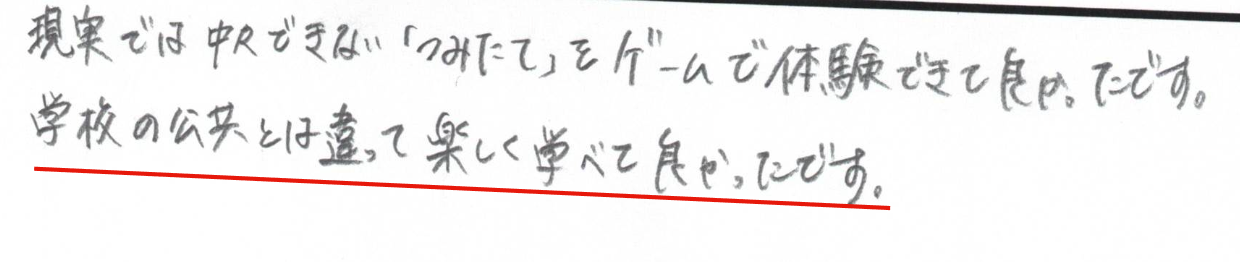 現実では中々できない「つみたて」をゲームで体験できて良かったです。
学校の公共とは違って楽しく学べて良かったです。